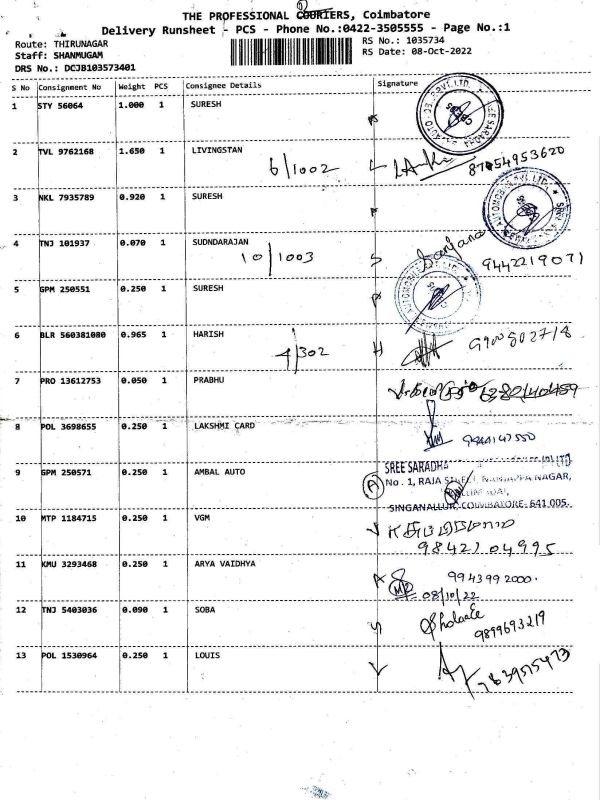 THE PROFESSIONAL COURIERS, Coimbatore
Delivery Runsheet - PCS - Phone No.:0422-3505555 - Page No.:1
Route: THIRUNAGAR
RS No.: 1035734
Staff: SHANMUGAM
RS Date: 08-Oct-2022
DRS No.: DCJB103573401
S No Consignment No Weight PCS Consignee Details Signature
1 STY 56064 1.000 1 SURESH
2 TVL 9762168 1.650 1 LIVINGSTAN
6/1002
3 NKL 7935789 0.920 1 SURESH
4 TNJ 101937 0.070 1 SUDNDARAJAN
10/1003 S Sanjana 9442219071
5 GPM 250551 0.250 1 SURESH
6 BLR 560381080 0.965 1 HARISH
4/302 H
7 PRO 13612753 0.050 1 PRABHU
8 POL 3698655 0.250 1 LAKSHMI CARD
9 GPM 250571 0.250 1 AMBAL AUTO
SREE SARADHA
A No. 1, RAJA STREET, NANJAPPA NAGAR,
SINGANALLUR, COIMBATORE- 641 005.
10 MTP 1184715 0.250 1 VGM
9842104995
11 KMU 3293468 0.250 1 ARYA VAIDHYA
9943992000.
08/10/22
12 TNJ 5403036 0.090 1 SOBA
9899693219
13 POL 1530964 0.250 1 LOUIS